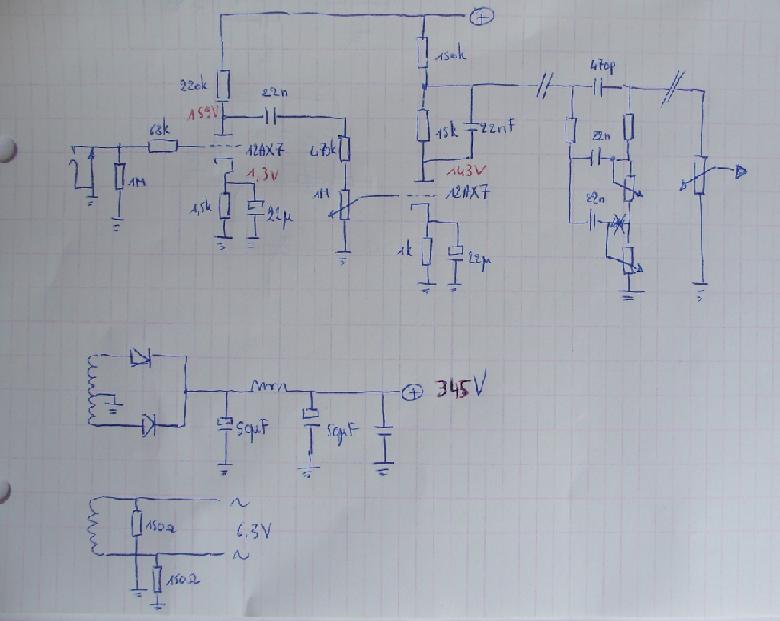 +
150k
220k
22n
470p
159V
15k
22nF
68k
12AX7
475k
22n
1,3V
143V
1M
1M
12AX7
1,5k
22µ
22n
1k
22µ
+ 345V
50µF
50µF
~
150Ω
6.3V
~
150Ω